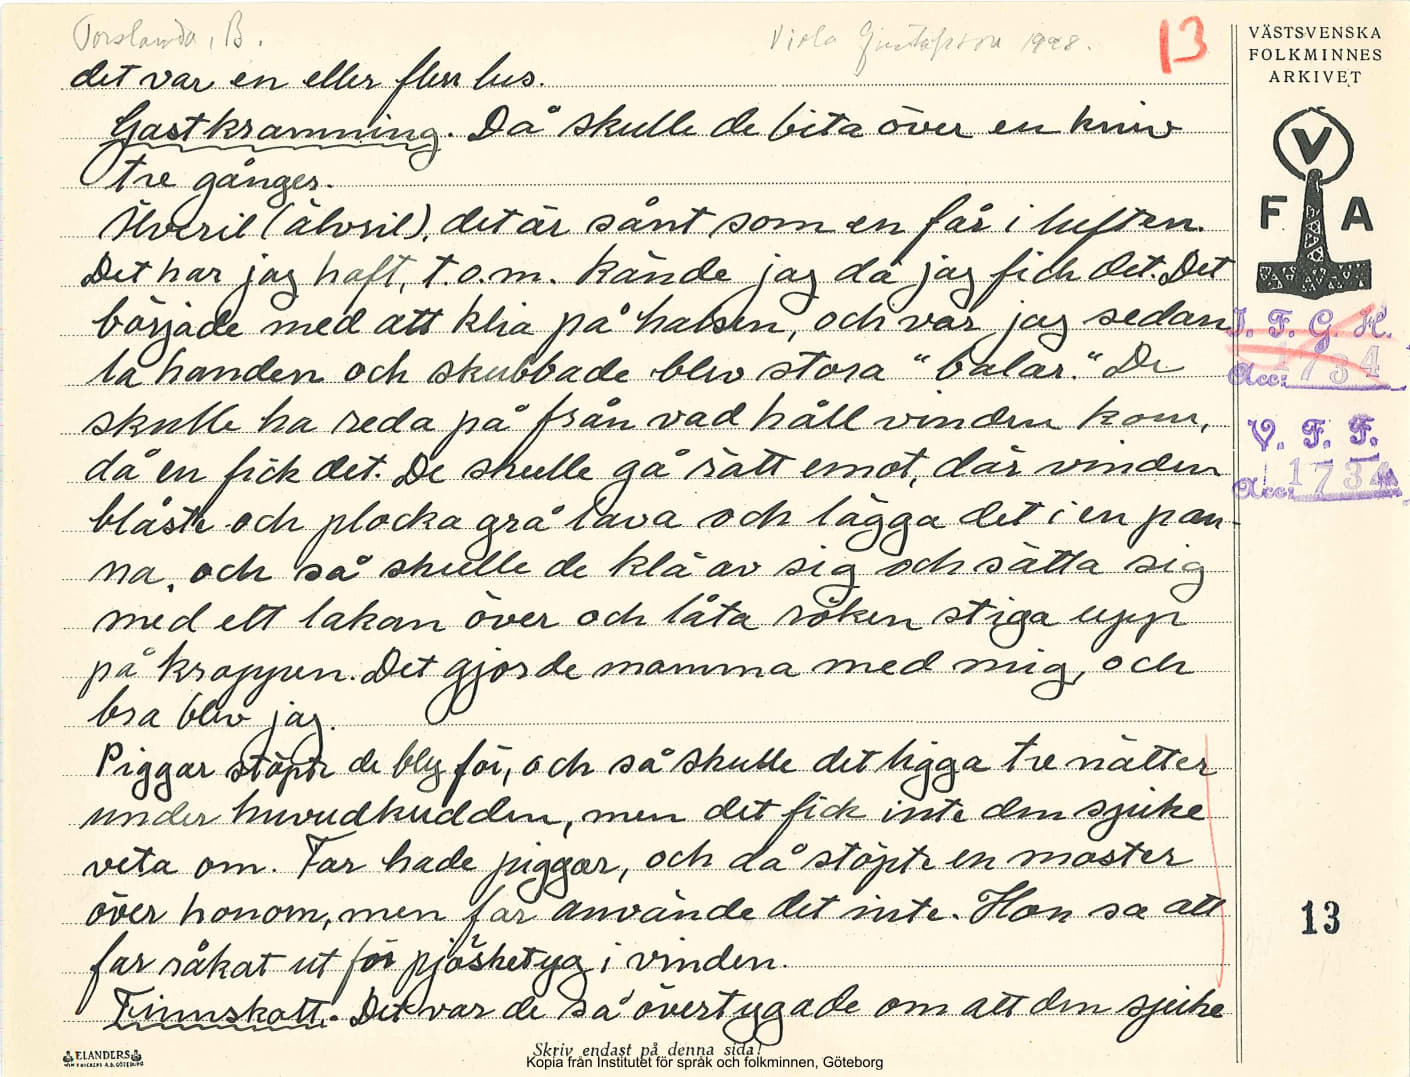 Torslanda, B.
Viola Gustafsson 1928.
13
VÄSTSVENSKA
FOLKMINNES
ARKIVET
det var en eller flera lus.
Gastkramning. Då skulle de bita över en kniv
tre gånger.
Älveril (älvsil), det är sånt som en får i luften.
Det har jag haft, t.o.m. kände jag då jag fick det. Det
började med att klia på halsen, och var jag sedan
la handen och skubbade blev stora "balar." De
skulle ha reda på från vad håll vinden kom,
då en fick det. De skulle gå rätt emot, där vinden
blåste och plocka grå lava och lägga det i en pan-
na, och så skulle de klä av sig och sätta sig
med ett lakan över och låta röken stiga upp
på kroppen. Det gjorde mamma med mig, och
bra blev jag.
Piggar stöpte de bly för, och så skulle det ligga tre nätter
under huvudkudden, men det fick inte den sjuke
veta om. Far hade piggar, och då stöpte en moster
över honom, men far använde det inte. Hon sa att
far råkat ut för pjösketyg i vinden.
Finnskott. Det var de så övertygade om att den sjuke
V
F A
I. F. G. H.
Acc: 1734
V. F. F.
Acc: 1734
13
ELANDERS
Skriv endast på denna sida!
Kopia från Institutet för språk och folkminnen, Göteborg